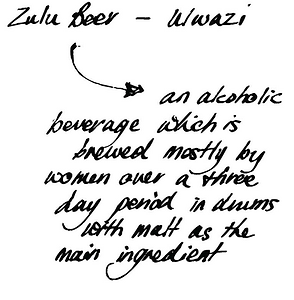 Zulu Beer - Ulwazi
an alcoholic
beverage which is
brewed mostly by
women over a three
day period in drums
with malt as the
main ingredient